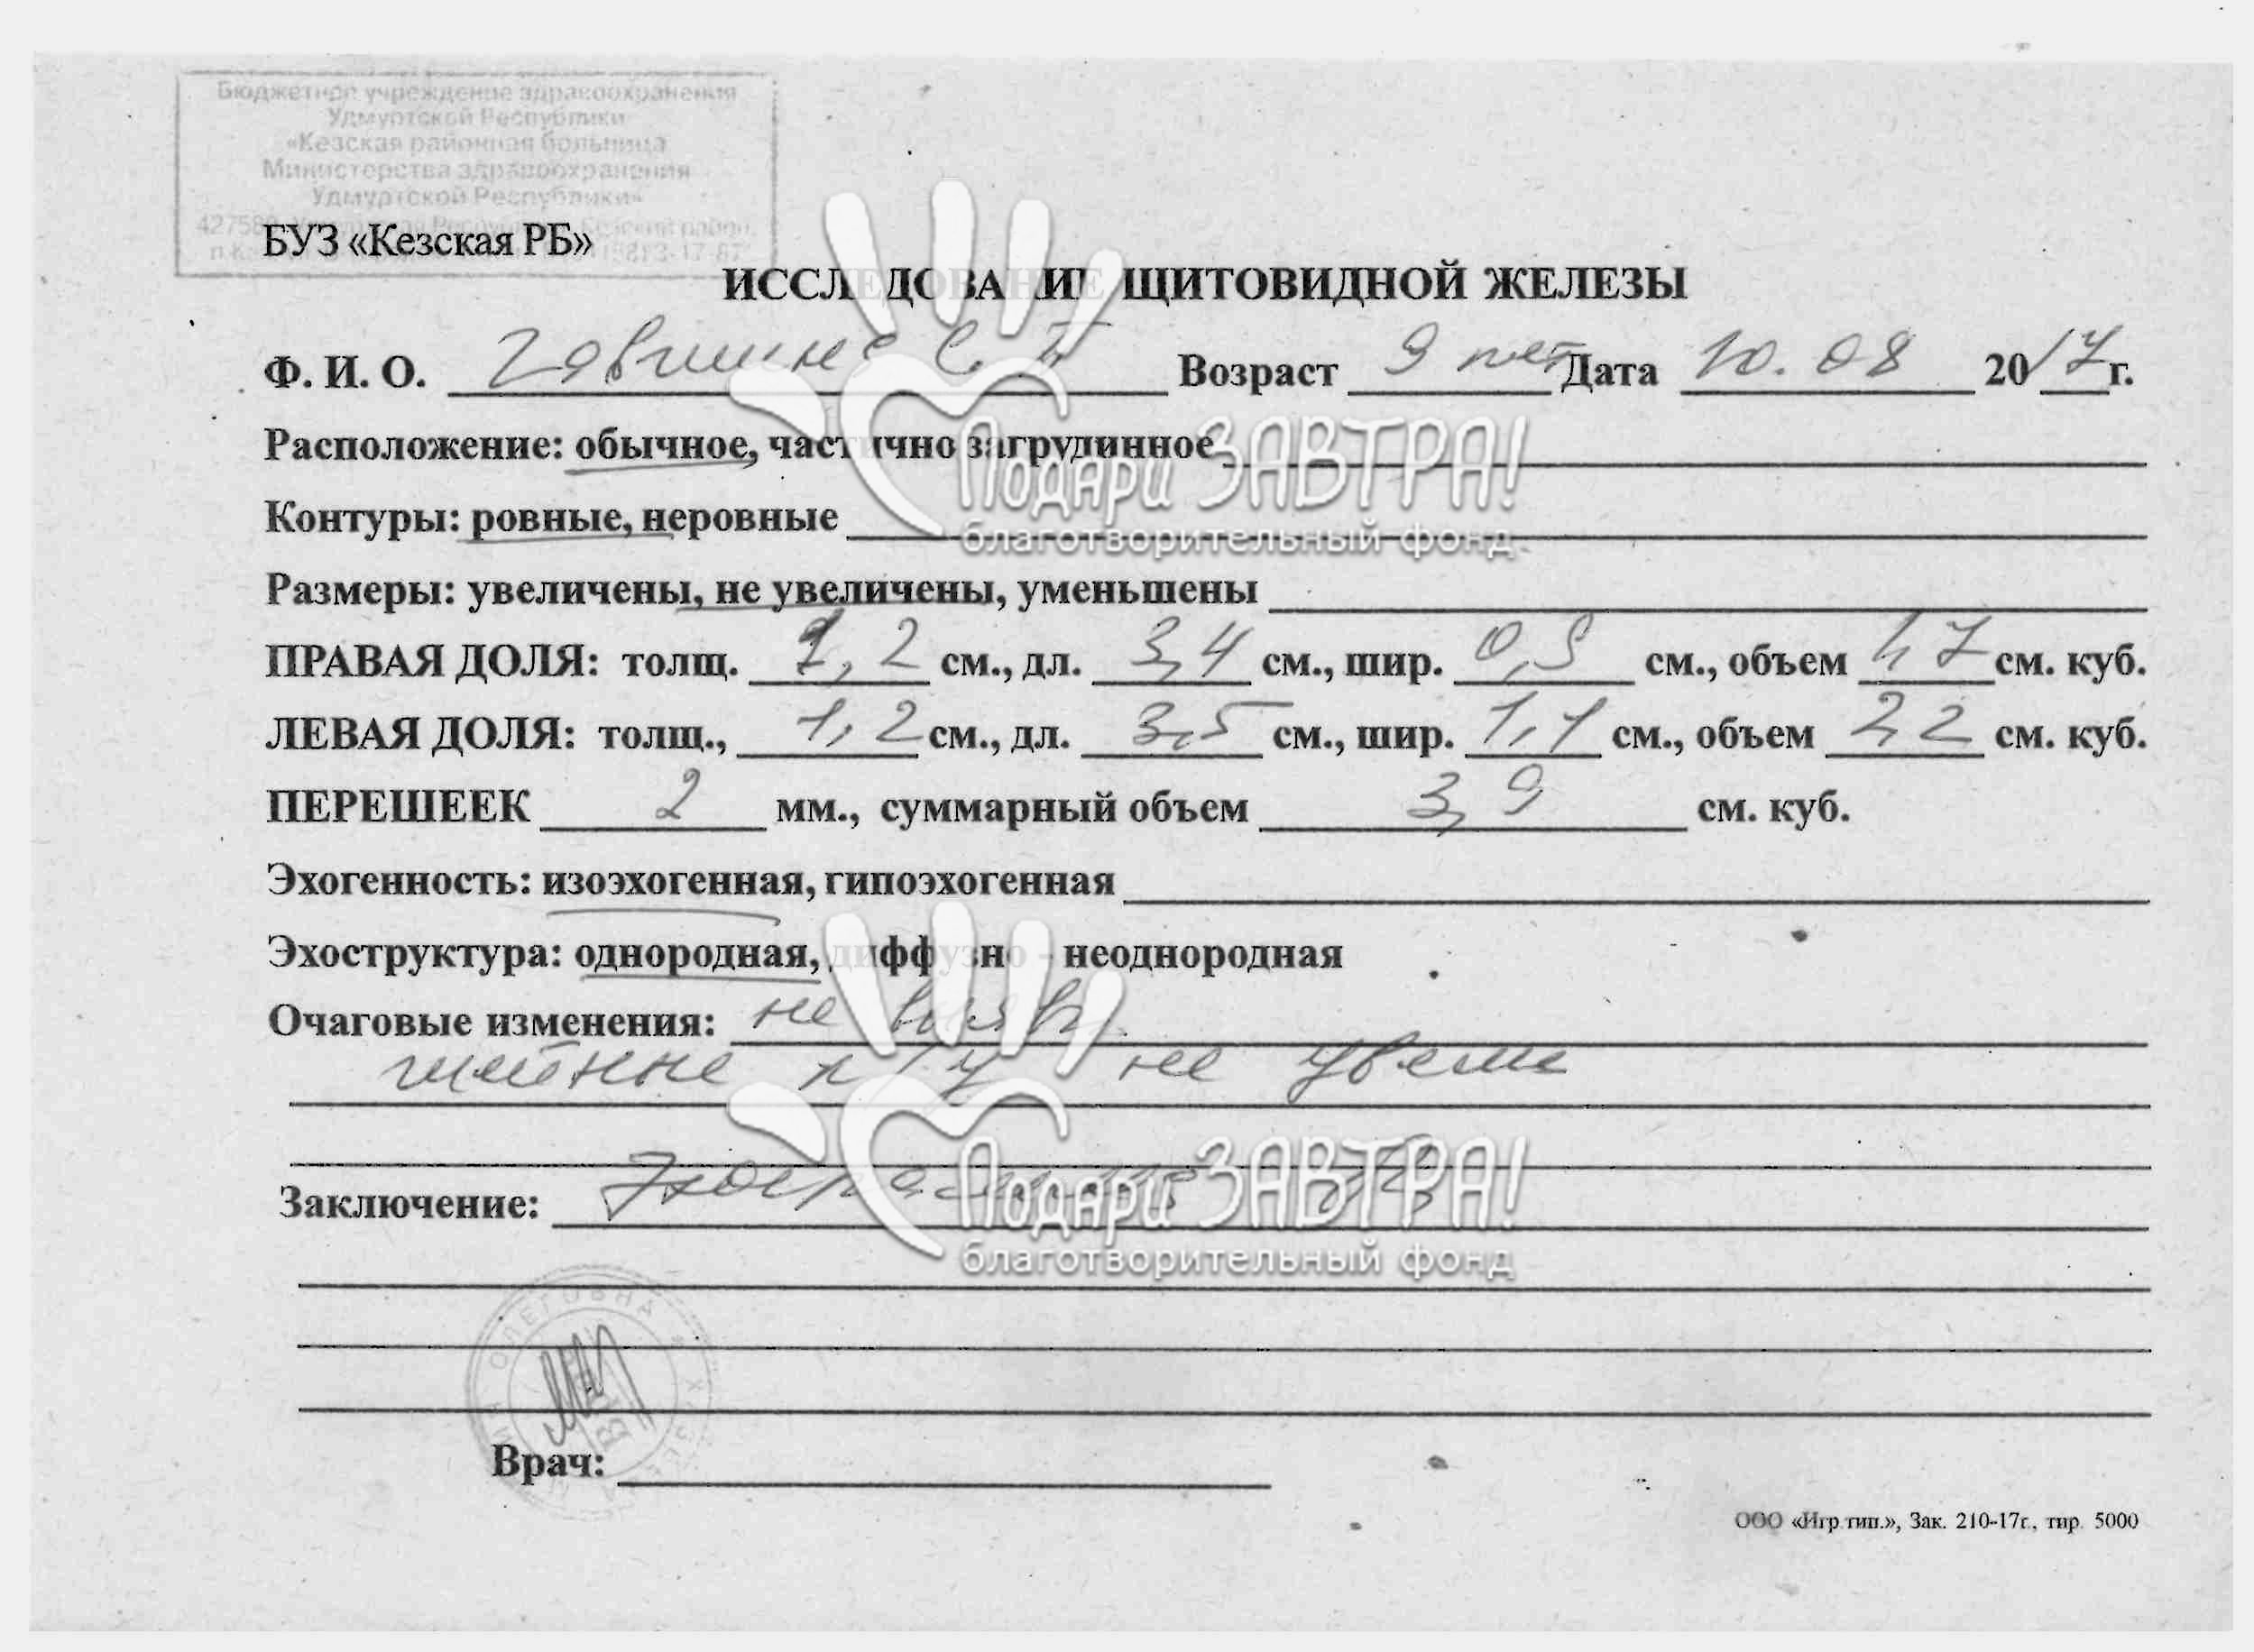 Бюджетное учреждение здравоохранения
Удмуртской Республики
«Кезская районная больница
Министерства здравоохранения
Удмуртской Республики»
БУЗ «Кезская РБ»
ИССЛЕДОВАНИЕ ЩИТОВИДНОЙ ЖЕЛЕЗЫ
Ф. И. О. Возраст 9 лет Дата 10.08 2017г.
Расположение: обычное, частично загрудинное
Подари ЗАВТРА!
Контуры: ровные, неровные
благотворительный фонд
Размеры: увеличены, не увеличены, уменьшены
ПРАВАЯ ДОЛЯ: толщ. 1,2 см., дл. 3,4 см., шир. 0,9 см., объем 1,7 см. куб.
ЛЕВАЯ ДОЛЯ: толщ., 1,2 см., дл. 3,5 см., шир. 1,1 см., объем 2,2 см. куб.
ПЕРЕШЕЕК 2 мм., суммарный объем 3,9 см. куб.
Эхогенность: изоэхогенная, гипоэхогенная
Эхоструктура: однородная, диффузно - неоднородная
Очаговые изменения: не выявл.
шейные л/у не увелич
Подари ЗАВТРА!
Заключение:
благотворительный фонд
ОЛЕГОВНА
Врач:
ООО «Игр.тип.», Зак. 210-17г., тир. 5000